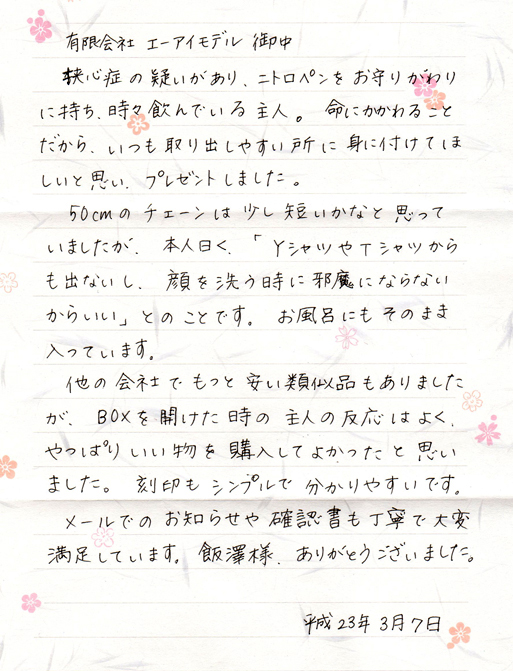 有限会社 エーアイモデル 御中
狭心症の疑いがあり、ニトロペンをお守りがわり
に持ち、時々飲んでいる主人。 命にかかわること
だから、いつも取り出しやすい所に身に付けてほ
しいと思い、プレゼントしました。
50cmのチェーンは少し短いかなと思って
いましたが、本人曰く、「YシャツやTシャツから
も出ないし、顔を洗う時に邪魔にならない
からいい」とのことです。 お風呂にもそのまま
入っています。
他の会社でもっと安い類似品もありました
が、BOXを開けた時の主人の反応はよく、
やっぱりいい物を購入してよかったと思い
ました。刻印もシンプルで分かりやすいです。
メールでのお知らせや確認書も丁寧で大変
満足しています。飯澤様、ありがとうございました。
平成23年3月7日